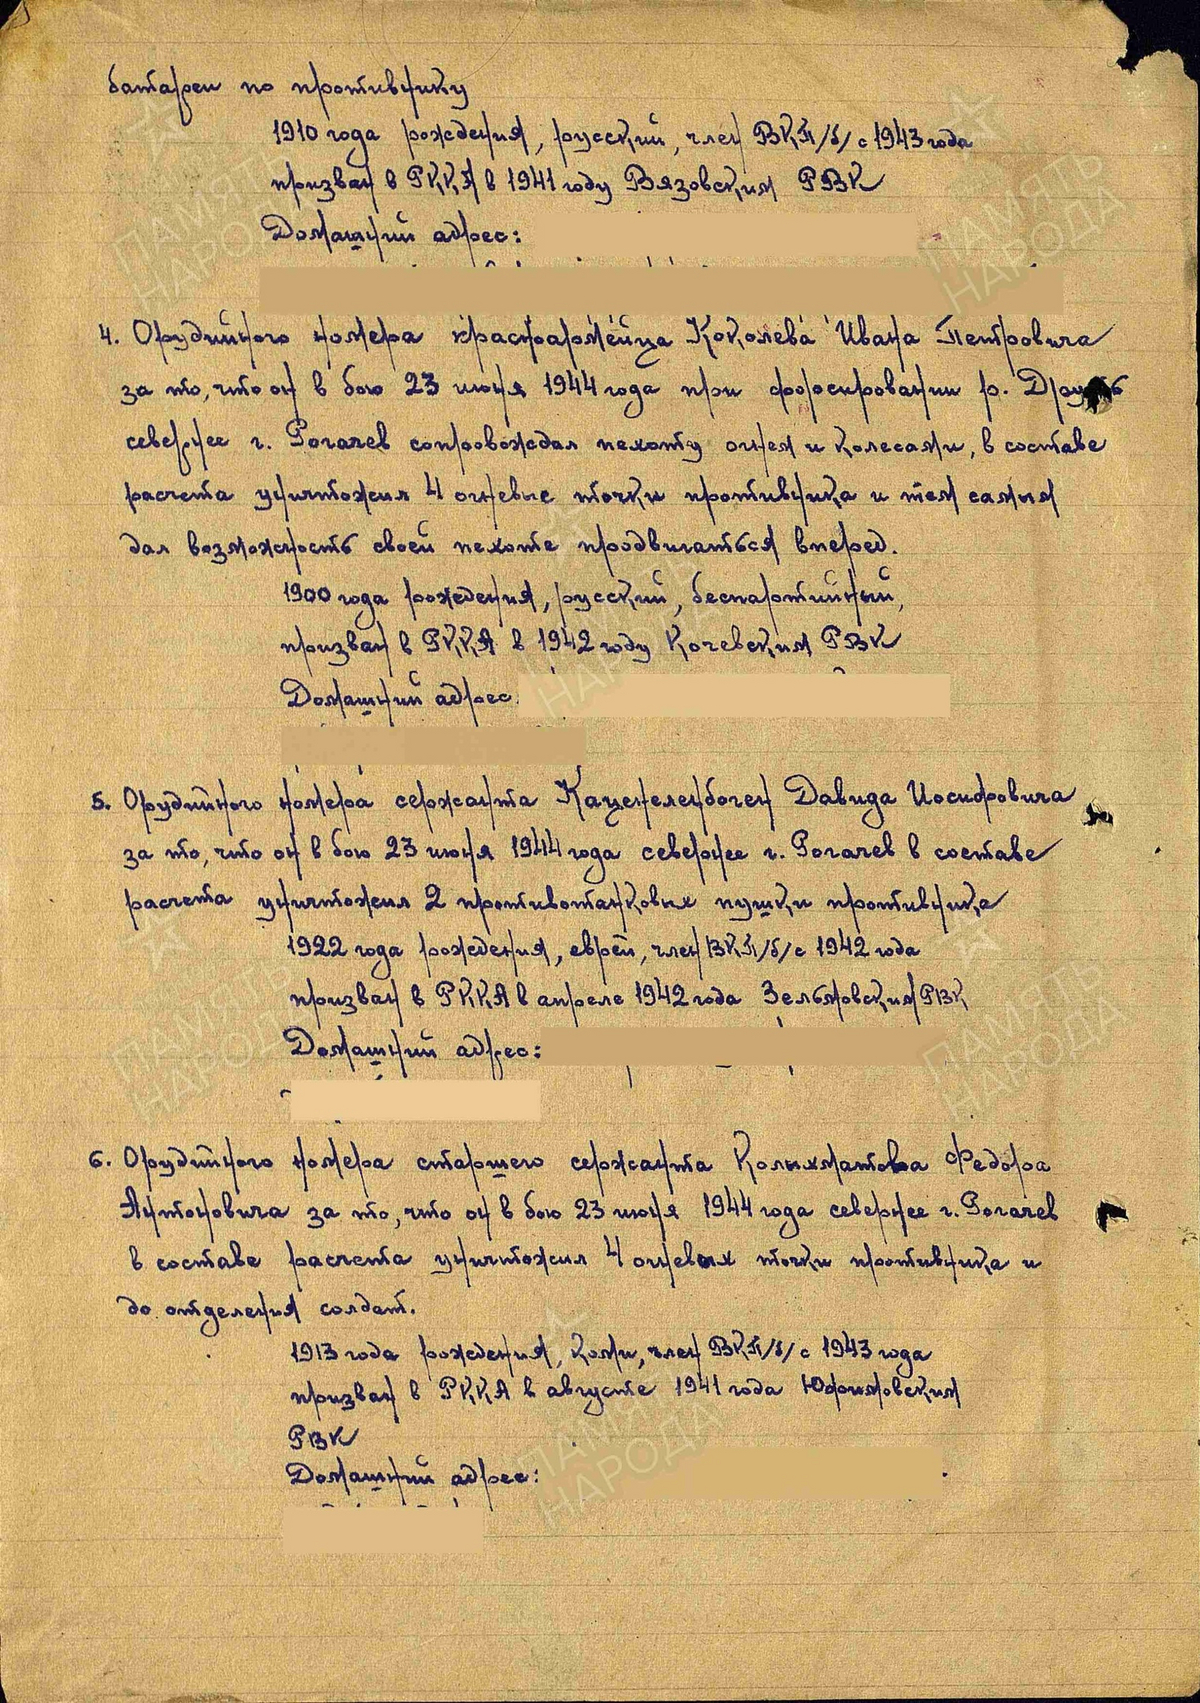 батареи по противнику
1910 года рождения, русский, член ВКП/б/ с 1943 года
призван в РККА в 1941 году Вязовским РВК
Домашний адрес:
4. Орудийного номера красноармейца Коколева Ивана Петровича
за то, что он в бою 23 июня 1944 года при форсировании р. Друть
севернее г. Рогачев сопровождал пехоту огнем и колесами, в составе
расчета уничтожил 4 огневые точки противника и тем самым
дал возможность своей пехоте продвигаться вперед.
1900 года рождения, русский, беспартийный,
призван в РККА в 1942 году Кочевским РВК
Домашний адрес
5. Орудийного номера сержанта Каценеленбоген Давида Иосифовича
за то, что он в бою 23 июня 1944 года севернее г. Рогачев в составе
расчета уничтожил 2 противотанковых пушки противника
1922 года рождения, еврей, член ВКП/б/ с 1942 года
призван в РККА в апреле 1942 года Зельмовским РВК
Домашний адрес:
6. Орудийного номера старшего сержанта Колыхматова Федора
Антоновича за то, что он в бою 23 июня 1944 года севернее г. Рогачев
в составе расчета уничтожил 4 огневых точки противника и
до отделения солдат.
1913 года рождения, коми, член ВКП/б/ с 1943 года
призван в РККА в августе 1941 года Юфимовским
РВК
Домашний адрес:
ПАМЯТЬ
НАРОДА